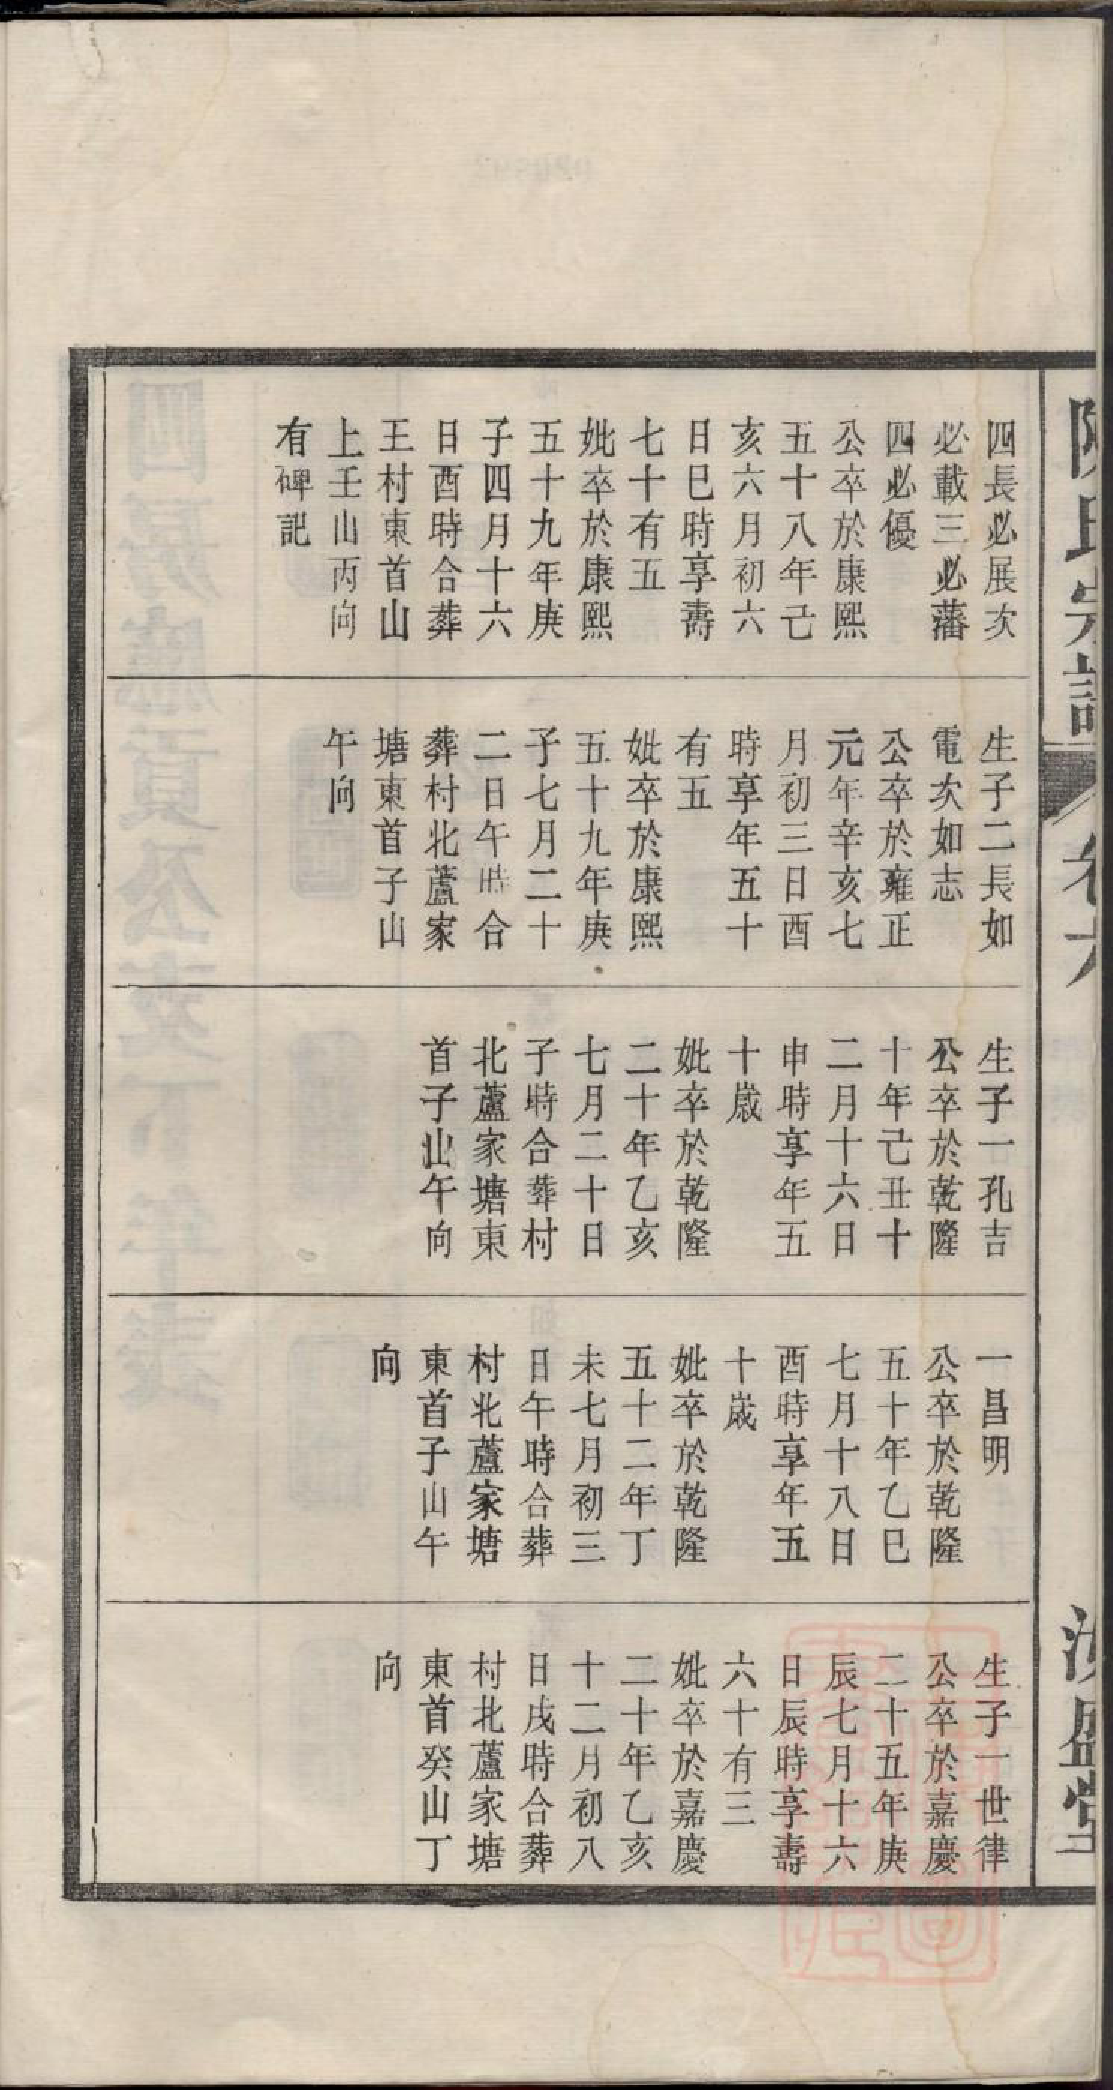 陳氏宗譜
卷六
四長必展次
必載三必藩
四必優
公卒於康熙
五十八年己
亥六月初六
日巳時享壽
七十有五
妣卒於康熙
五十九年庚
子四月十六
日酉時合葬
王村東首山
上壬山丙向
有碑記
生子二長如
電次如志
公卒於雍正
元年辛亥七
月初三日酉
時享年五十
有五
妣卒於康熙
五十九年庚
子七月二十
二日午時合
葬村北蘆家
塘東首子山
午向
生子一孔吉
公卒於乾隆
十年己丑十
二月十六日
申時享年五
十歲
妣卒於乾隆
二十年乙亥
七月二十日
子時合葬村
北蘆家塘東
首子山午向
一昌明
公卒於乾隆
五十年乙巳
七月十八日
酉時享年五
十歲
妣卒於乾隆
五十二年丁
未七月初三
日午時合葬
村北蘆家塘
東首子山午
向
生子一世律
公卒於嘉慶
二十五年庚
辰七月十六
日辰時享壽
六十有三
妣卒於嘉慶
二十年乙亥
十二月初八
日戌時合葬
村北蘆家塘
東首癸山丁
向